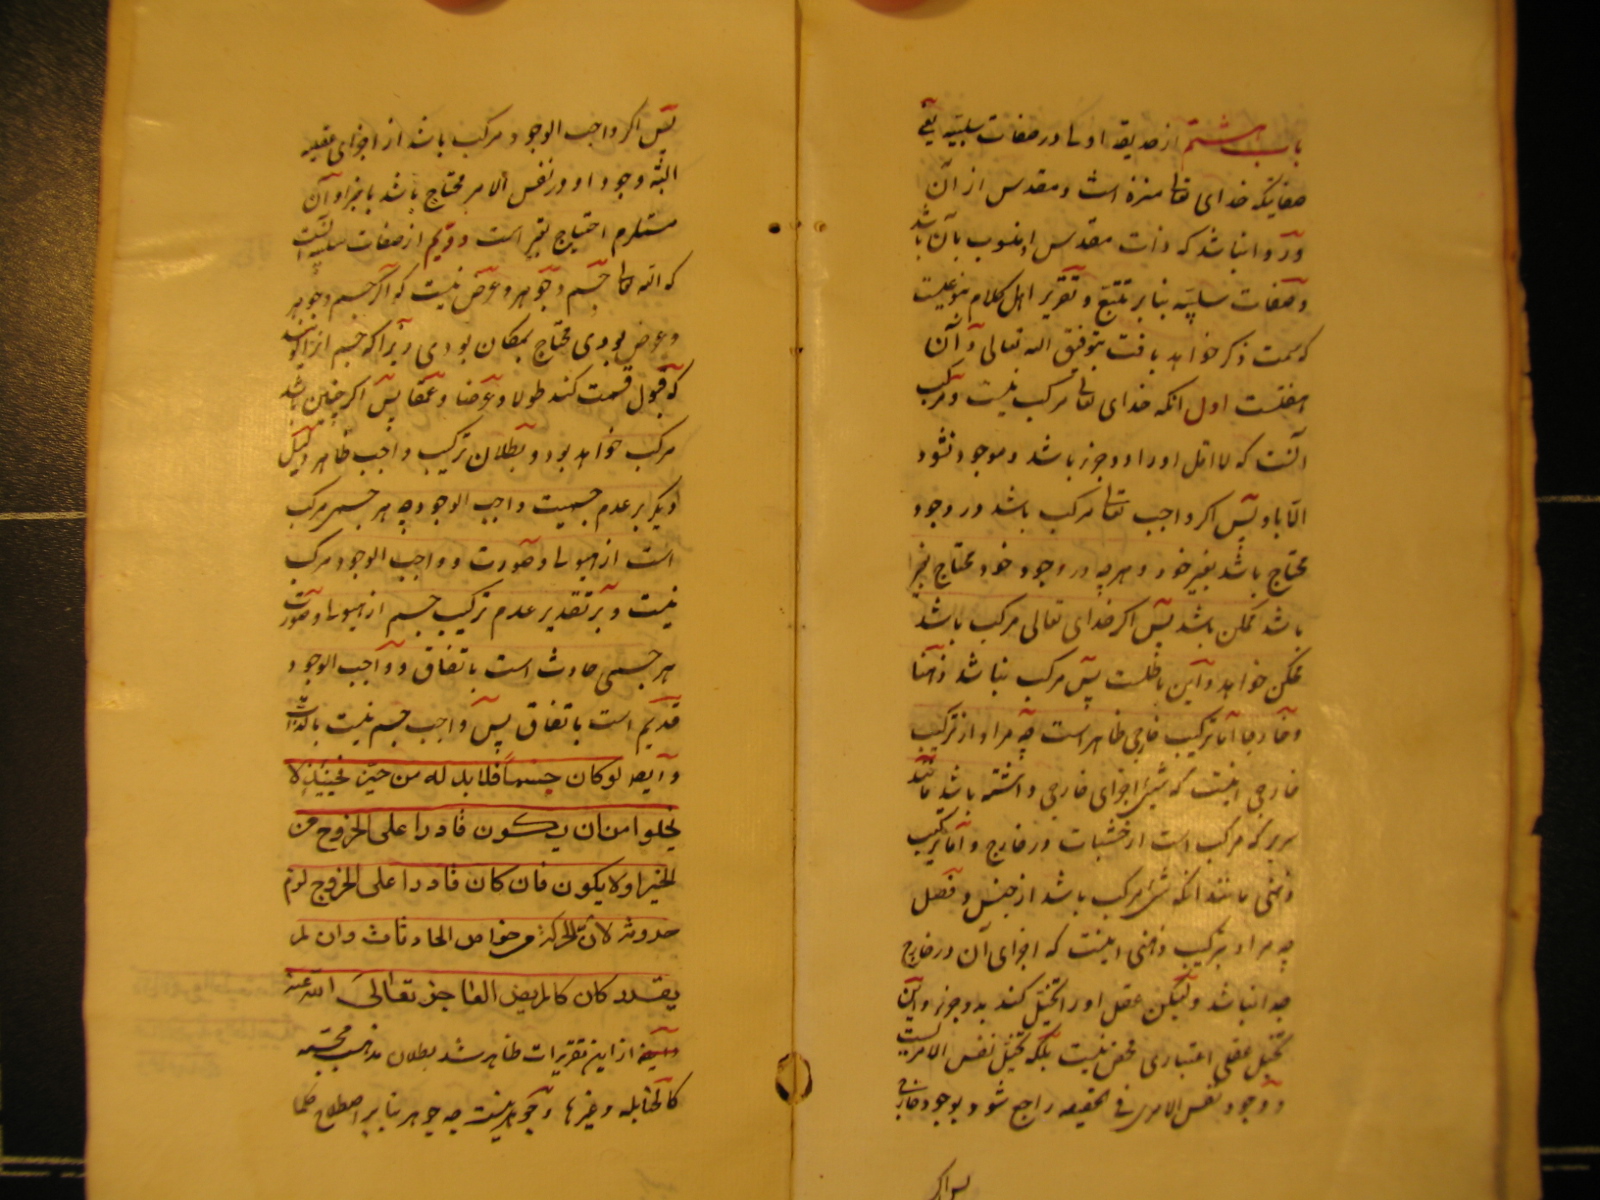 باب هشتم از حدیقه اولی در صفات سلبیه یعنی
صفاتیکه خدای تعالی منزه است و مقدس از آن
و روا نباشد که ذات مقدس او منسوب بآن باشد
و صفات سلبیه بنا بر تتبع و تقریر اهل کلام
که سمت ذکر خواهد یافت بتوفیق الله تعالی و آن
اول انکه خدای تعالی مرکب نیست و مرکب
آنست که لا اقل او را دو جزء باشد و موجود نشود
الا باو پس اکر واجب تعالی مرکب باشد در وجود
محتاج باشد بغیر خود و هر چه در وجود خود محتاج بغیر
باشد ممکن باشد پس اکر خدای تعالی مرکب باشد
ممکن خواهد و این باطلست پس مرکب نباشد ذهنا
و خارجا اما ترکیب خارجی ظاهر است چه مراد از ترکیب
خارجی اینست که شیئ اجزای خارجی داشته باشد مانند
سریر که مرکب است از خشبات در خارج و اما ترکیب
ذهنی مانند انکه شئ مرکب باشد از جنس و فصل
چه مراد بترکیب ذهنی اینست که اجزای آن در خارج
جدا نباشد و لیکن عقل او را تحلیل کند بدو جزء و این
تحلیل عقلی اعتباری محض نیست بلکه تحلیل نفس الامریست
و وجود نفس الامری فی الحقیقه راجع شود بوجود خارجی
پس اکر
پس اکر واجب الوجود مرکب باشد از اجزای عقلیه
البته وجود او در نفس الامر محتاج باشد باجزا و آن
مستلزم احتیاج بغیر است دویم از صفات سلبیه آنست
که الله تعالی جسم و جوهر و عرض نیست که اکر جسم و جوهر
و عرض بودی محتاج بمکان بودی زیرا که جسم انرا کویند
که قبول قسمت کند طولا و عرضا و عمقا پس اکر چنین باشد
مرکب خواهد بود و بطلان ترکیب واجب ظاهر دلیل
دیکر بر عدم جسمیت واجب الوجود چه هر جسمی مرکب
است از هیولی و صورت و واجب الوجود مرکب
نیست و بر تقدیر عدم ترکیب جسم از هیولی و صورت
هر جسمی حادث است باتفاق و واجب الوجود
قدیم است باتفاق پس واجب جسم نیست بالذات
و ایضا لو کان جسماً فلا بد له من حیّز فحینئذ لا
یخلوا من ان یکون قادرا علی الخروج من
الحیز او لا یکون فان کان قادرا علی الخروج لزم
حدوثه لان الحرکة من خواص الحادثات وان لم
یقدر کان کالمریض العاجز تعالی الله عنه
از این تقریرات ظاهر شد بطلان مذهب مجسمه
کالحنابله و غیرها و جوهر نیست چه جوهر بنا بر اصطلاح حکما